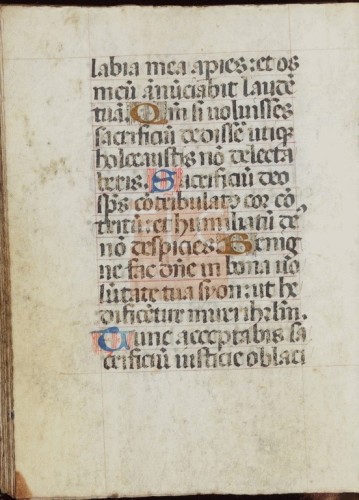 labia mea apies: et os
meū ānūciabit laudē
tuā. Qm̄ si voluisses
sacrificiū dedissē utiqꝫ
holocaustis nō delecta
beris. Sacrificiū deo
spūs cōtribulatꝰ cor cō
tritū: et humiliatū dē
nō despicies. Benig
ne fac dn̄e in bona vo
lūtate tua syon: ut he
dificētur muri ihrlm̄.
Tunc acceptabis sa
crificiū iusticie oblaci